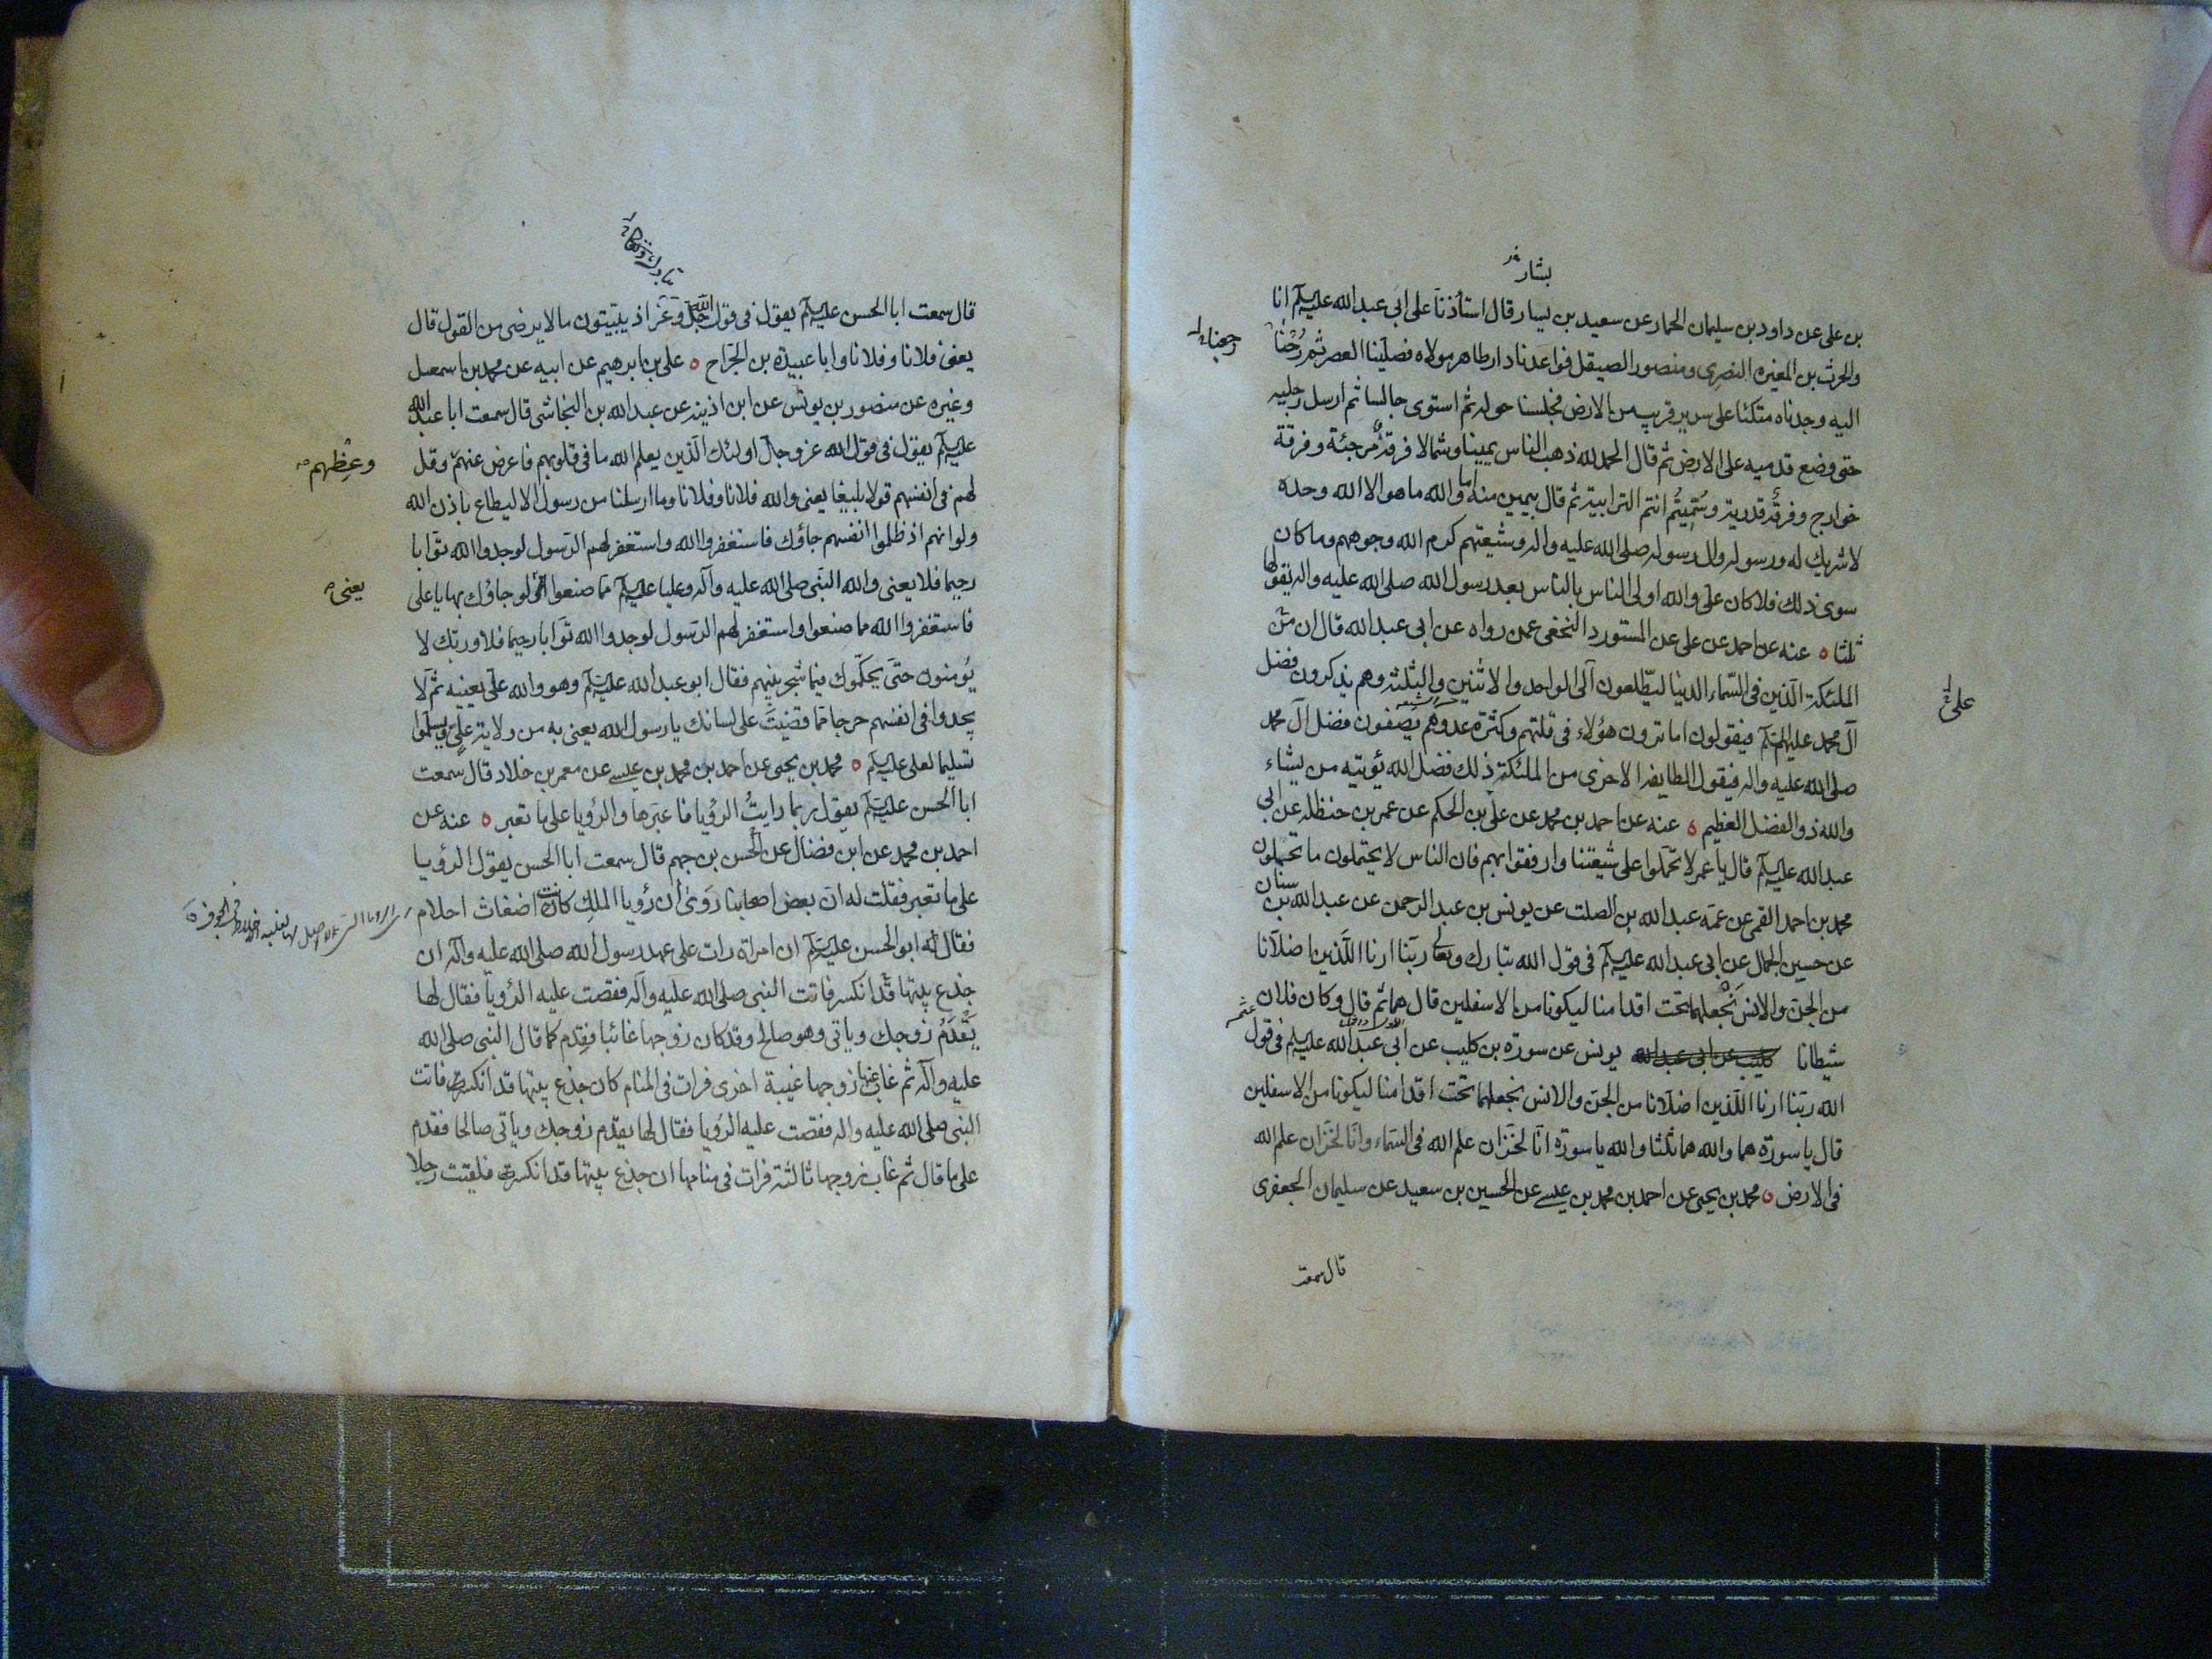 بشار
بن على عن داود بن سليمان الحمار عن سعيد بن يسار قال استأذنا على ابى عبد الله عليه السلم انا
والحرث بن المغيره النصرى ومنصور الصيقل فواعدنا دار طاهر مولاه فصلينا العصر ثم رُحنا
رجعنا
اليه وجدناه متكئا على سرير قريب من الارض فجلسنا حوله ثم استوى جالسا ثم ارسل رجليه
حتى وضع قدميه على الارض ثم قال الحمد لله ذهب الناس يمينا وشمالا فرقة مرجئة وفرقة
خوارج وفرقة قدرية وسُمّيتُم انتم الترابية ثم قال بيمين منه اما والله ما هو الا الله وحده
لا شريك له ورسوله وال رسوله صلى الله عليه واله وشيعتهم كرم الله وجوههم وما كان
سوى ذلك فلا كان على والله اولى الناس بالناس بعد رسول الله صلى الله عليه واله يقولها
ثلثا ٥ عنه عن احمد عن على عن المستورد النخعى عمن رواه عن ابى عبد الله قال ان من
الملئكة الذين فى السّماء الدنيا ليطّلعون الى الواحد والاثنين والثلثة وهم يذكرون فضل
على
آل محمد عليهم السلم فيقولون اما ترون هؤلاء فى قلتهم وكثرة عدوهم يصفون فضل آل محمد
صلى الله عليه واله فيقول الطايفة الاخرى من الملئكة ذلك فضل الله يؤتيه من يشاء
والله ذو الفضل العظيم ٥ عنه عن احمد بن محمد عن على بن الحكم عن عمر بن حنظلة عن ابى
عبد الله عليه السلم قال يا عمر لا تحملوا على شيعتنا وارفقوا بهم فان الناس لا يحتملون ما تحملون
محمد بن احمد القمى عن عمه عبد الله بن الصلت عن يونس بن عبد الرحمن عن عبد الله بن سنان
عن حسين الجمال عن ابى عبد الله عليه السلم فى قول الله تبارك وتعالى ربنا ارنا اللَّذين اضلانا
من الجن والانس نجعلهما تحت اقدامنا ليكونا من الاسفلين قال هما ثم قال وكان فلان
شيطانا كليب عن ابى عبد الله يونس عن سورة بن كليب عن ابى عبد الله عليه السلم فى قول
الله ربنا ارنا اللّذين اضلانا من الجن والانس نجعلهما تحت اقدامنا ليكونا من الاسفلين
قال يا سورة هما والله هما ثلثا والله يا سورة انا لخزان علم الله فى السماء وانا لخزان علم الله
فى الارض ٥ محمد بن يحيى عن احمد بن محمد بن عيسى عن الحسين بن سعيد عن سليمان الجعفرى
قال سمعت
قال سمعت ابا الحسن عليه السلم يقول فى قول الله جل وعز اذ يبيتون ما لا يرضى من القول قال
يعنى فلانا وفلانا وابا عبيدة بن الجراح ٥ على بن ابرهيم عن ابيه عن محمد بن اسمعيل
وغيره عن منصور بن يونس عن ابن اذينه عن عبد الله بن النجاشى قال سمعت ابا عبد الله
عليه السلم يقول فى قول الله عز وجل اولئك الذين يعلم الله ما فى قلوبهم فاعرض عنهم وقل
وعِظهم
لهم فى انفسهم قولا بليغا يعنى والله فلانا وفلانا وما ارسلنا من رسول الا ليطاع باذن الله
ولو انهم اذ ظلموا انفسهم جاؤك فاستغفروا الله واستغفر لهم الرسول لوجدوا الله توابا
رحيما فلا يعنى والله النبى صلى الله عليه وآله وعليا عليه السلم مما صنعوا لو جاؤك بها يا على
يعنى
فاستغفروا الله مما صنعوا واستغفر لهم الرسول لوجدوا الله توابا رحيما فلا وربك لا
يؤمنون حتى يحكّموك فيما شجر بينهم فقال ابو عبد الله عليه السلم وهو والله على بعينه ثم لا
يجدوا فى انفسهم حرجا مما قضيتَ على لسانك يا رسول الله يعنى به من ولاية على ويسلّموا
تسليما لعلى عليه السلم ٥ محمد بن يحيى عن احمد بن محمد بن عيسى عن معمر بن خلاد قال سمعت
ابا الحسن عليه السلم يقول ربما رايتُ الرؤيا فاعبرها والرؤيا على ما تعبر ٥ عنه عن
احمد بن محمد عن ابن فضال عن الحسن بن جهم قال سمعت ابا الحسن يقول الرؤيا
على ما تعبر فقلت له ان بعض اصحابنا روى ان رؤيا الملك كانت اضغاث احلام
فقال له ابو الحسن عليه السلم ان امراة رات على عهد رسول الله صلى الله عليه وآله ان
جذع بيتها قد انكسر فاتت النبى صلى الله عليه وآله فقصت عليه الرؤيا فقال لها
يَقدَمُ زوجك وياتى وهو صالح وقد كان زوجها غائبا فقدم كما قال النبى صلى الله
عليه وآله ثم غاب عنها زوجها غيبة اخرى فرات فى المنام كان جذع بيتها قد انكسر فاتت
النبى صلى الله عليه واله فقصت عليه الرؤيا فقال لها يقدم زوجك وياتى صالحا فقدم
على ما قال ثم غاب زوجها ثالثة فرات فى منامها ان جذع بيتها قد انكسر فلقيت رجلا